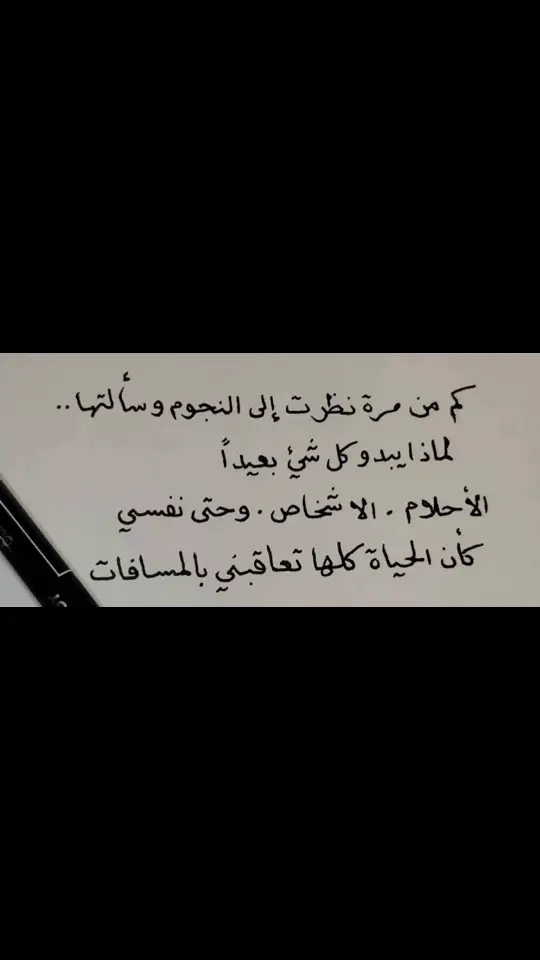 كم من مرة نظرت إلى النجوم وسألتها..
لماذا يبدو كل شئ بعيداً
الأحلام . الاشخاص . وحتى نفسي
كأن الحياة كلها تعاقبني بالمسافات